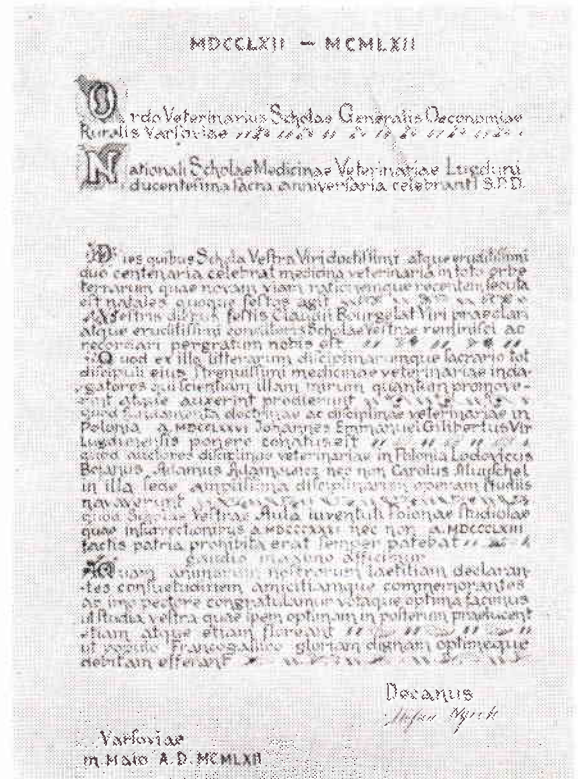 MDCCLXII — MCMLXII
Ordo Veterinarius Scholae Generalis Oeconomiae
Ruralis Varsoviae
Nationali Scholae Medicinae Veterinariae Lugduni
ducentesima sacra anniversaria celebranti S.P.D.
Dies quibus Schola Vestra Viri doctissimi atque eruditissimi
duo centenaria celebrat medicina veterinaria in toto orbe
terrarum quae novam viam rationemque recentem secuta
est natales quoque festos agit
Vestris diebus festis Claudii Bourgelat Viri praeclari
atque eruditissimi Scholae Vestrae reminisci ac
recordari pergratum nobis est
Quod ex illa litterarum disciplinarumque sacrario tot
discipuli eius strenuissimi medicinae veterinariae inda-
gatores qui scientiam illam mirum quantum promove-
rint atque auxerint prodierunt
quod fundamenta doctrinae ac disciplinae veterinariae in
Polonia a MDCCLXXVI Johannes Emmanuel Gilibertus Vir
Lugdunensis ponere conatus est
quod auctores disciplinae veterinariae in Polonia Lodovicus
Bojanus Adamus Adamowicz nec non Carolus Muyschel
in illa sede amplissima disciplinarum operam studiis
navaverunt
quod Scholae Vestrae Aula iuventuti Polonae studiosae
quae insurrectionibus a MDCCCXXXI nec non a MDCCCLXIII
factis patria prohibita erat semper patebat
gaudio maximo afficimur
Quam animorum nostrorum laetitiam declaran-
tes consuetudinem amicitiamque commemorantes
ac imo pectore congratulamur votaque optima facimus
ut studia vestra quae spem optimam in posterum praelucent
etiam atque etiam floreant
ut populo Francogallico gloriam dignam optimeque
debitam efferant
Decanus
Varsoviae
m. Maio A.D. MCMLXII